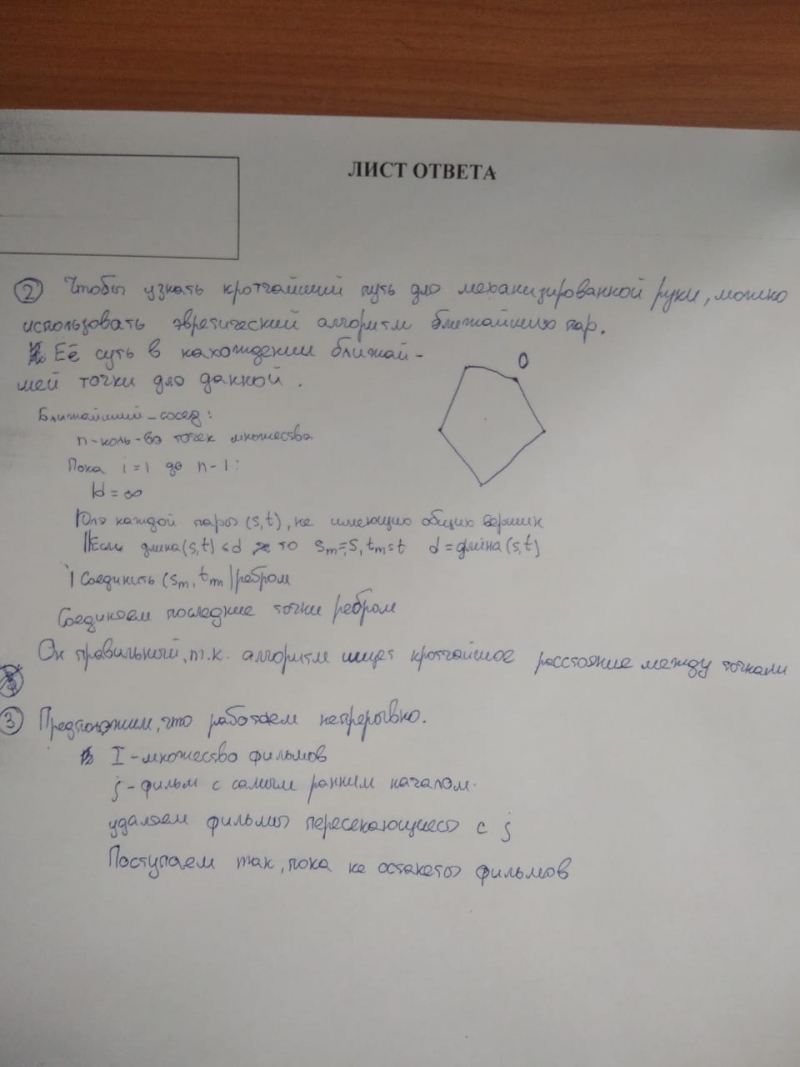 ЛИСТ ОТВЕТА
② Чтобы узнать кротчайший путь для механизированной руки, можно
использовать эвретический алгоритм ближайших пар.
Её суть в нахождении ближай-
шей точки для данной.
0
Ближайший-сосед:
n-коль-во точек множества
Пока i=1 до n-1:
d=∞
Для каждой пары (s,t), не имеющих общих вершин
Если длина(s,t)<d то Sm=S, tm=t d=длина(s,t)
Соединить (Sm, tm) ребром
Соединяем последние точки ребром
Он правильный, т.к. алгоритм ищет кротчайшое расстояние между точками
③ Предположим, что работаем непрерывно.
I-множество фильмов
j-фильм с самым ранним началом.
удаляем фильмы пересекающиеся с j
Поступаем так, пока не останется фильмов